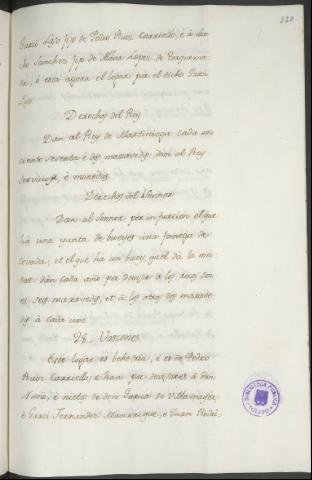 120
Garci Laso fijo de Pedro Ruiz Carriello, è à San
cho Sanchez fijo de Mena Lopez de
è esta agora el logar por el dicho Garci
Laso.
Derechos del Rey
Dan al Rey de Martiniega cada año
ciento sesenta è dos maravedis: dan al Rey
servicios, è moneda.
Derechos del Sennor
Dan al Sennor por infurcion el que
hà una yunta de bueyes una fanega de
cevada, et el que hà un buey, quel dà la mi-
tat: dan cada año por devisa à los
seis maravedis, et à los otros dos marave-
dis à cada uno
28. Vascones
Este logar es behetria, è es de Pedro
Ruiz Carriello, è han por devisores à don
Nuño, è nietos de don Garcia de Villamayor,
è Garci Ferrandez Manrrique, è Juan Rodri-
BIBLIOTECA PUBLICA
TOLEDO